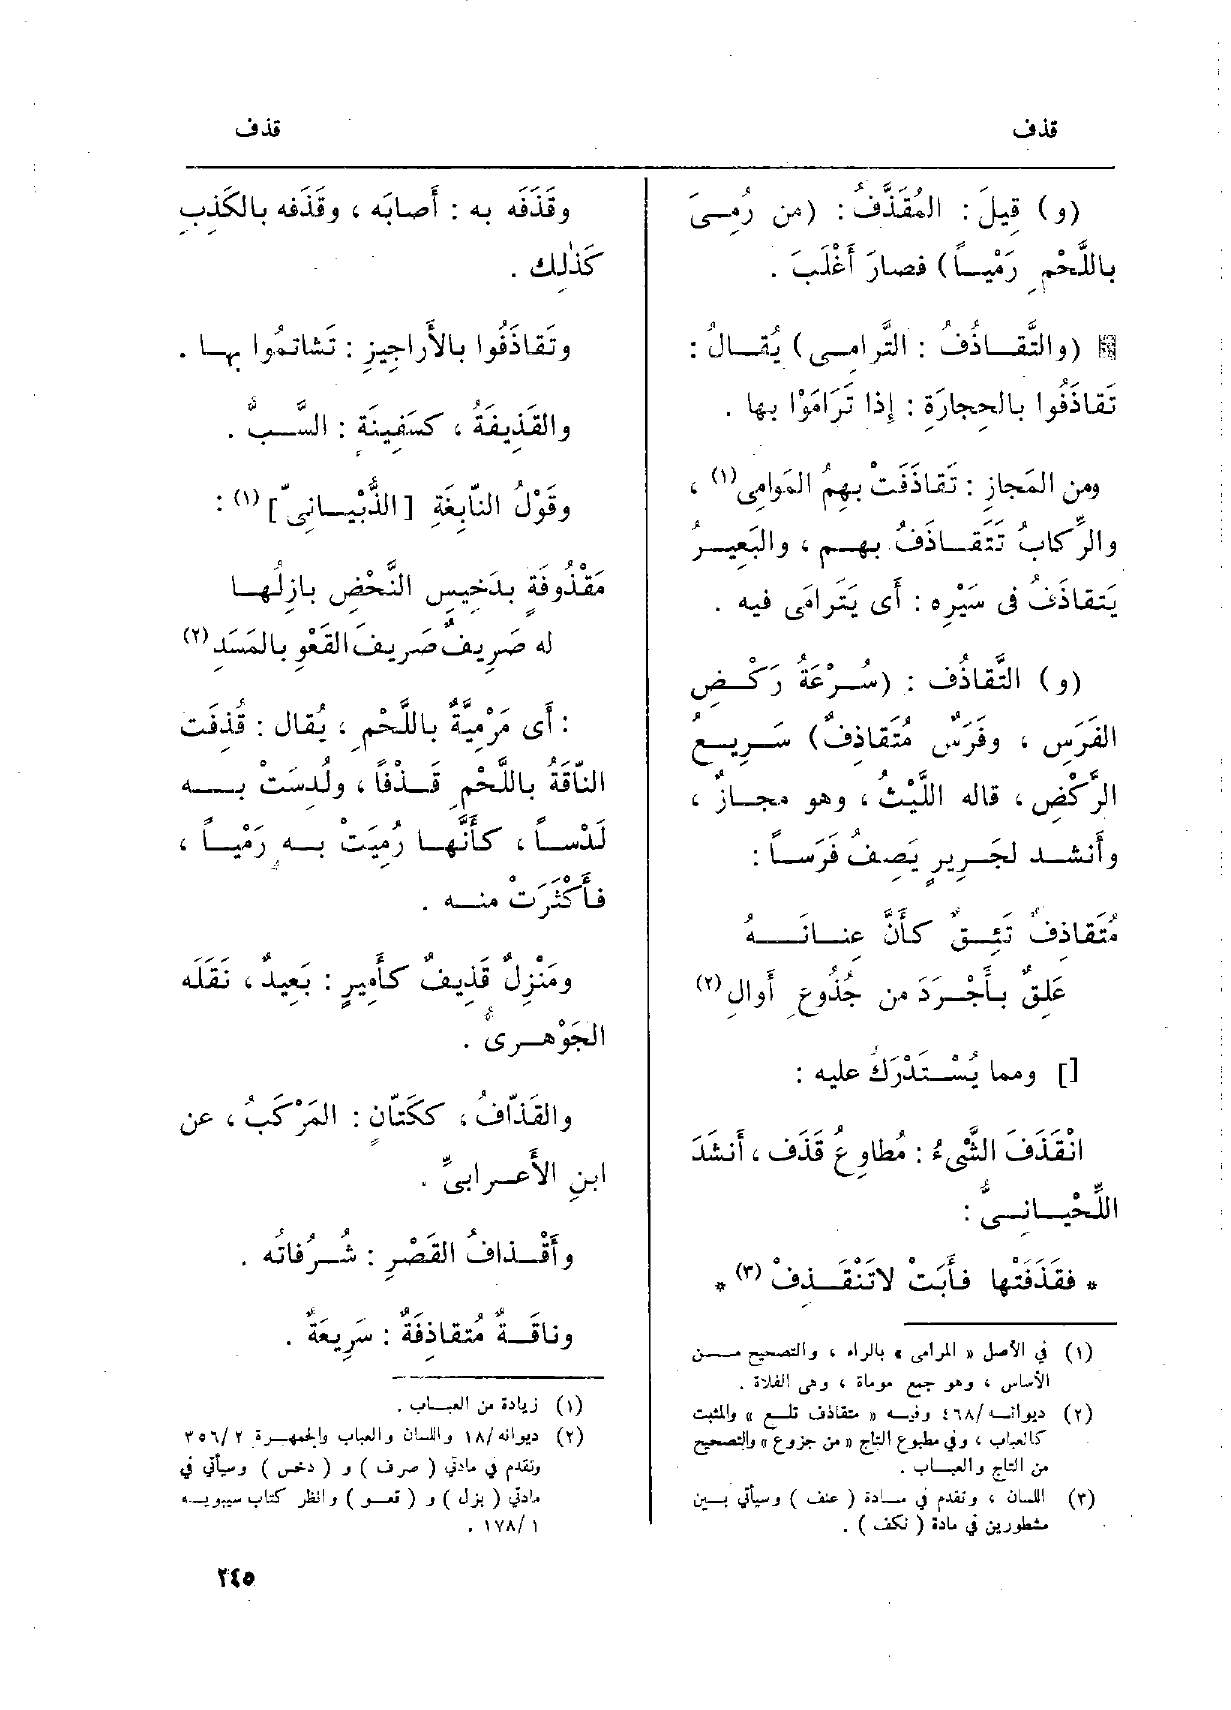 قذف
قذف
(و) قِيلَ : المُقَذَّفُ : (من رُمِىَ
باللَّحْمِ رَمْيــاً) فصارَ أَغْلَبَ .
(والتَّقــاذُفُ : التَّرامِــى) يُقــالُ :
تَقاذَفُوا بالحِجارَةِ : إذا تَرَامَوْا بها .
ومن المَجازِ : تَقاذَفَتْ بهِمُ المَوامِى (١) ،
والرِّكابُ تَتَقــاذَفُ بهــم ، والبَعِيــرُ
يَتقاذَفُ فى سَيْرِه : أَى يَتَرامَى فيه .
(و) التَّقاذُف : (سُــرْعَةُ رَكْــضِ
الفَرَسِ ، وفَرَسٌ مُتَقاذِفٌ) سَــرِيــعُ
الرَّكْضِ ، قاله اللَّيْثُ ، وهو مجــازٌ ،
وأَنشــد لجَــرِيرٍ يَصِفُ فَرَســاً :
مُتَقاذِفٌ تَئِــقٌ كأَنَّ عِنــانَــهُ
عَلِقٌ بــأَجْــرَدَ من جُذُوعِ أَوالِ (٢)
[] ومما يُسْــتَدْرَكُ عليه :
انْقَذَفَ الشَّىءُ : مُطاوِعُ قَذَف ، أَنشَدَ
اللِّحْيــانِــىُّ :
* فقَذَفَتْها فأَبَتْ لاتَنْقَــذِفْ (٣) *
(١) في الأصل « المرامى » بالراء ، والتصحيح مــن
الأساس ، وهو جمع موماة ، وهى الفلاة .
(٢) ديوانــه/٤٦٨ وفيــه « متقاذف تلــع » والمثبت
كالعباب ، وفي مطبوع التاج « من جزوع » والتصحيح
من التاج والعبــاب .
(٣) اللسان ، وتقدم في مــادة ( عنف ) وسيأتي بــين
مشطورين في مادة ( نكف ) .
وقَذَفَه به : أَصابَه ، وقَذَفه بالكَذِبِ
كَذٰلِك .
وتَقاذَفُوا بالأَراجِيزِ : تَشاتمُوا بهــا .
والقَذِيفَةُ ، كسَفِينَةٍ : السَّــبُّ .
وقَوْلُ النّابِغَةِ [ الذُّبْيــانِىّ ] (١) :
مَقْذُوفَةٍ بدَخِيسِ النَّحْضِ بازِلُهــا
له صَرِيفٌ صَرِيفَ القَعْوِ بالمَسَدِ (٢)
: أَى مَرْمِيَّةٌ باللَّحْمِ ، يُقال : قُذِفَت
النّاقَةُ باللَّحْمِ قَــذْفاً ، ولُدِسَتْ بــه
لَدْســاً ، كأَنَّهــا رُمِيَتْ بــه رَمْيــاً ،
فأَكْثَرَتْ منــه .
ومَنْزِلٌ قَذِيفٌ كأَمِيرٍ : بَعِيدٌ ، نَقَلَه
الجَوْهــرِىُّ .
والقَذّافُ ، ككَتّانٍ : المَرْكَبُ ، عن
ابنِ الأَعــرابىِّ .
وأَقْــذافُ القَصْرِ : شُــرُفاتُه .
وناقَــةٌ مُتقاذِفَةٌ : سَرِيعَةٌ .
(١) زيادة من العبــاب .
(٢) ديوانه/١٨ واللسان والعباب والجمهــرة ٣٥٦/٢
وتقدم في مادتي ( صرف ) و ( دخس ) وسيأتي في
مادتي ( بزل ) و ( قعــو ) وانظر كتاب سيبويــه
١٧٨/١ .
٢٤٥